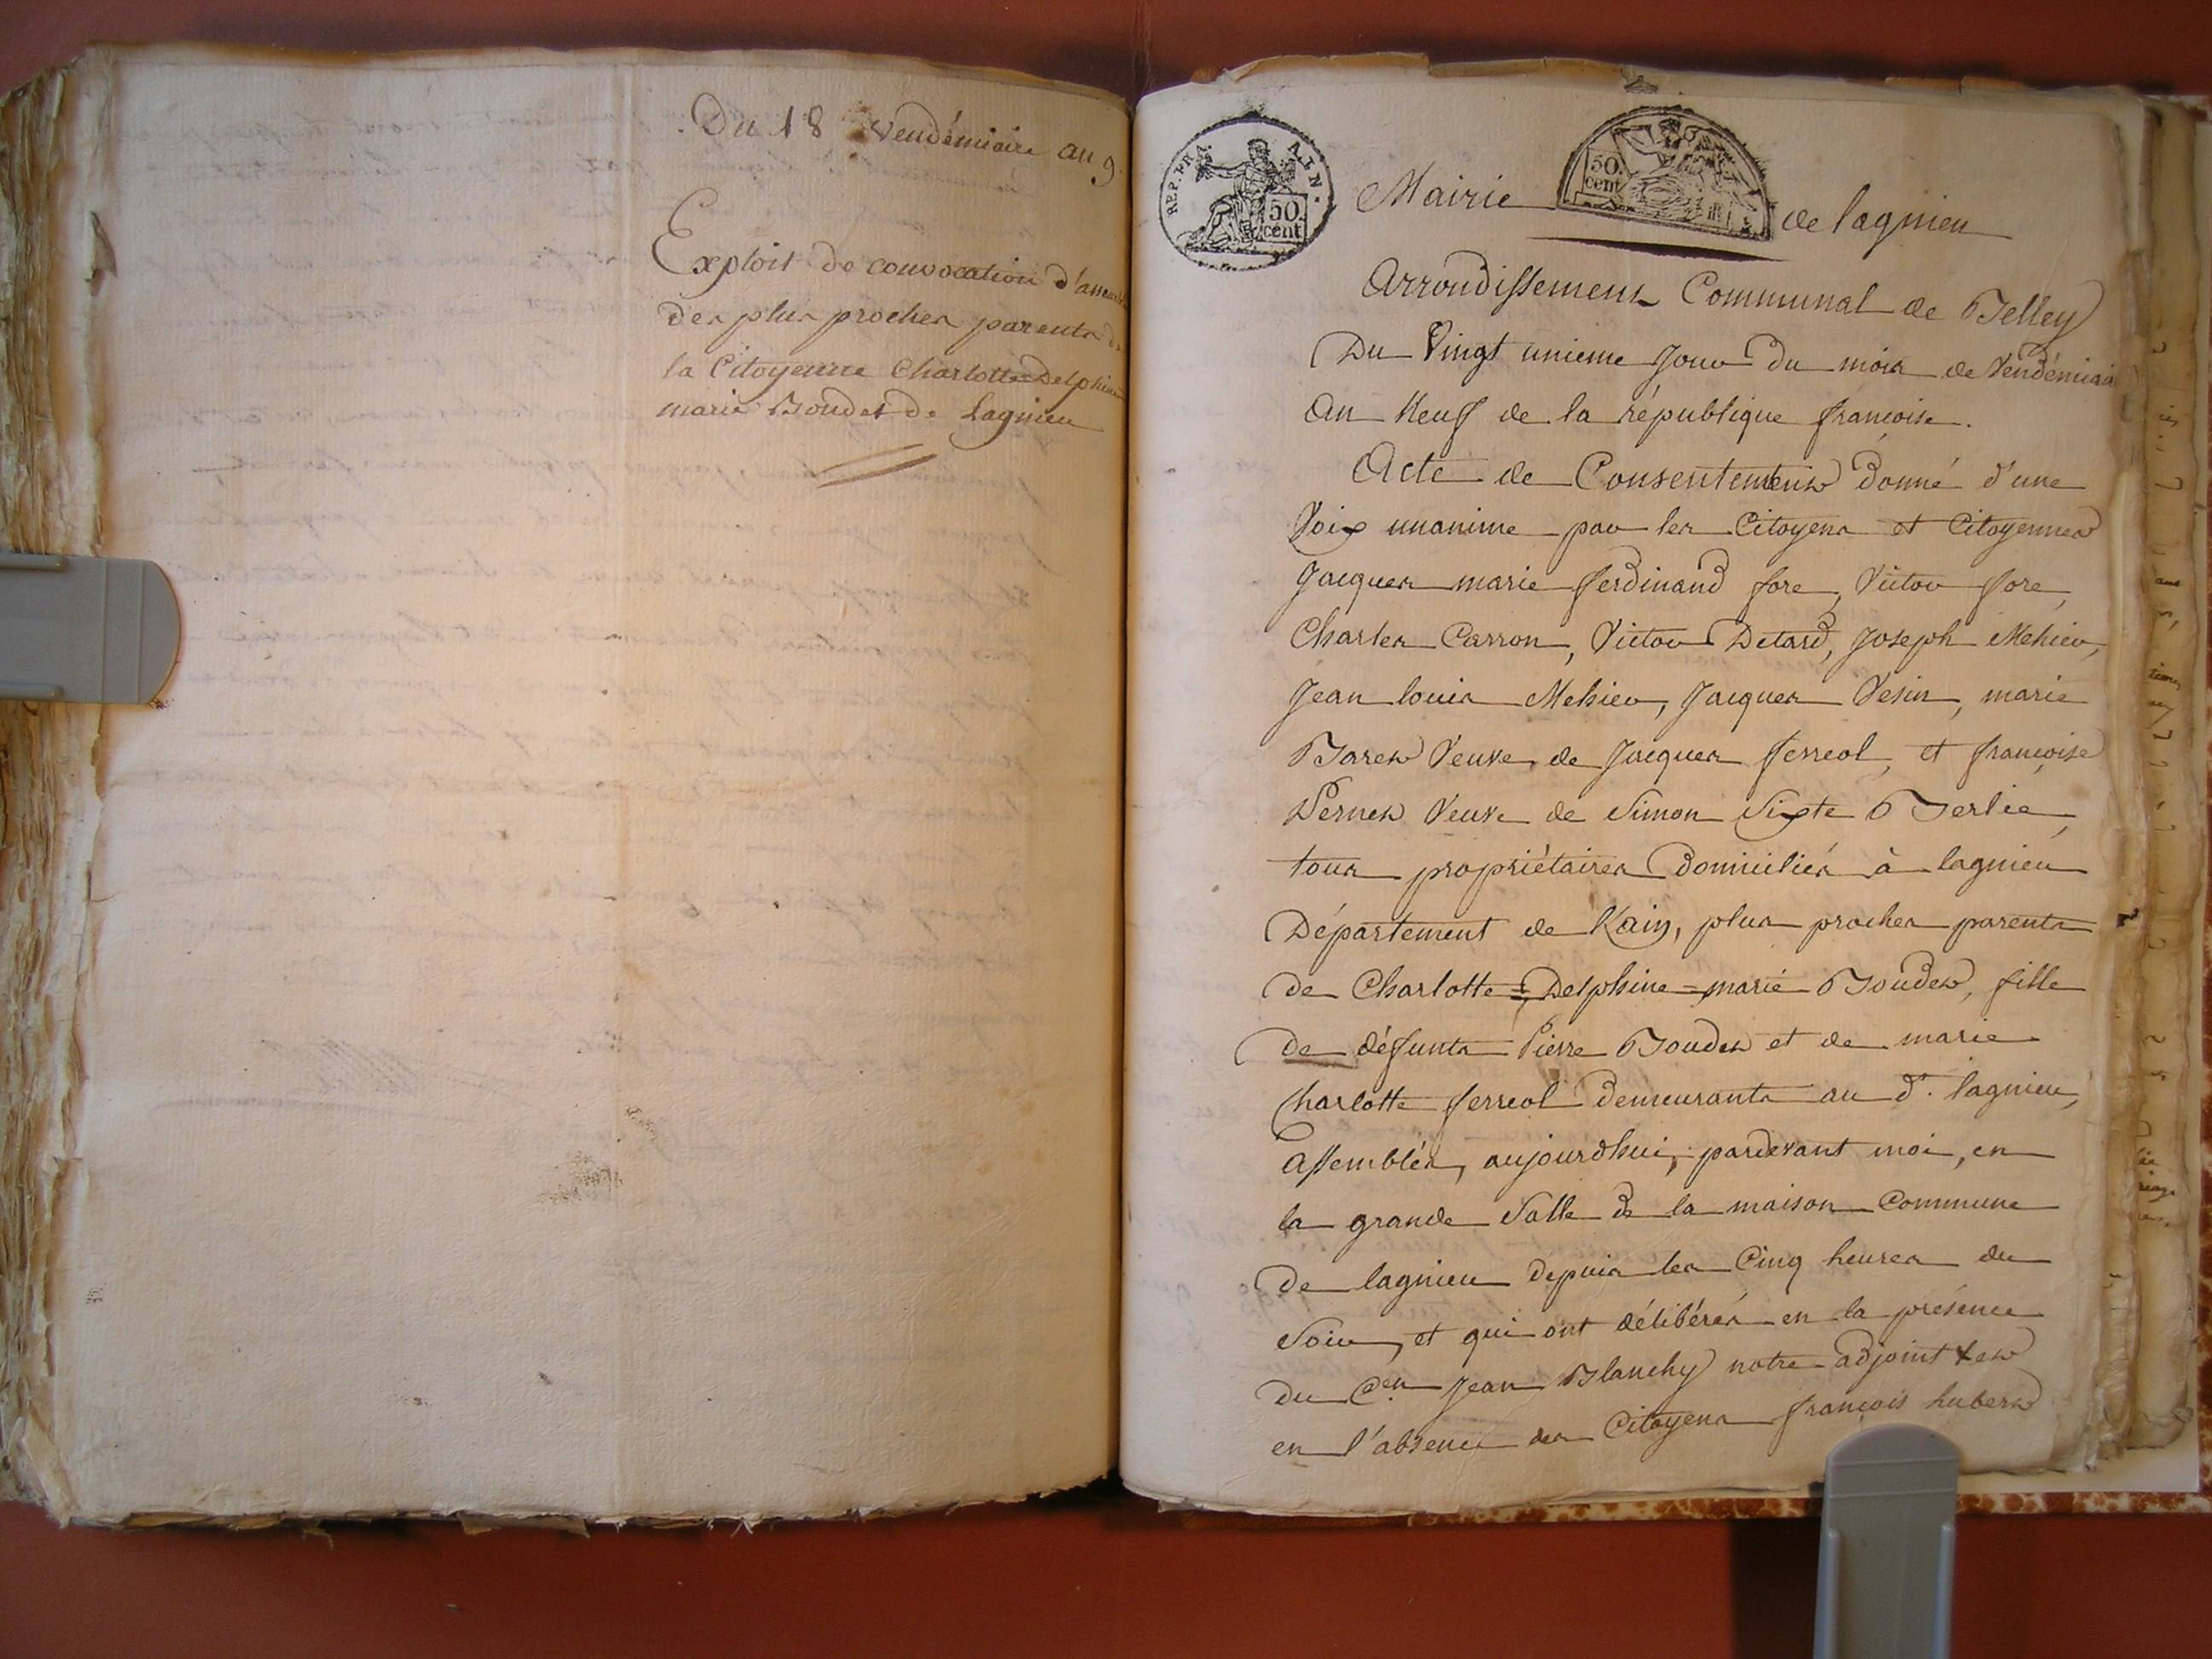 Du 18 Vendémiaire an 9.
Exploit de convocation d'assem
des plus proches parents de
la Citoyenne Charlotte=Delphine
marie Boudet de Lagnieu
REP. FRA.
50. cent
50. cent
Mairie de lagnieu
Arrondissement Communal de Belley
Du Vingt unieme Jour du mois de Vendémiaire
An Neuf de la république françoise.
Acte de Consentement Donné d'une
Voix unanime par les Citoyens et Citoyennes
Jacques marie ferdinand fore, Victor fore,
Charles Carron, Victor Detard, Joseph Mehier,
Jean louis Mehier, Jacques Vesin, marie
Baret Veuve de Jacques ferreol, et françoise
Pernet Veuve de Simon Sixte Berlie,
tous propriétaires Domiciliés à lagnieu
Département de l'ain, plus proches parents
de Charlotte=Delphine=marie Boudet, fille
de défunts Pierre Boudet et de marie
Charlotte ferreol Demeurants au dt. lagnieu,
Assemblés, aujourdhui, pardevant moi, en
la grande Salle de la maison Commune
de lagnieu depuis les Cinq heures du
Soir, et qui ont délibérés en la présence
du Cen. Jean Blanchy notre adjoint et
en l'absence des Citoyens françois hubert